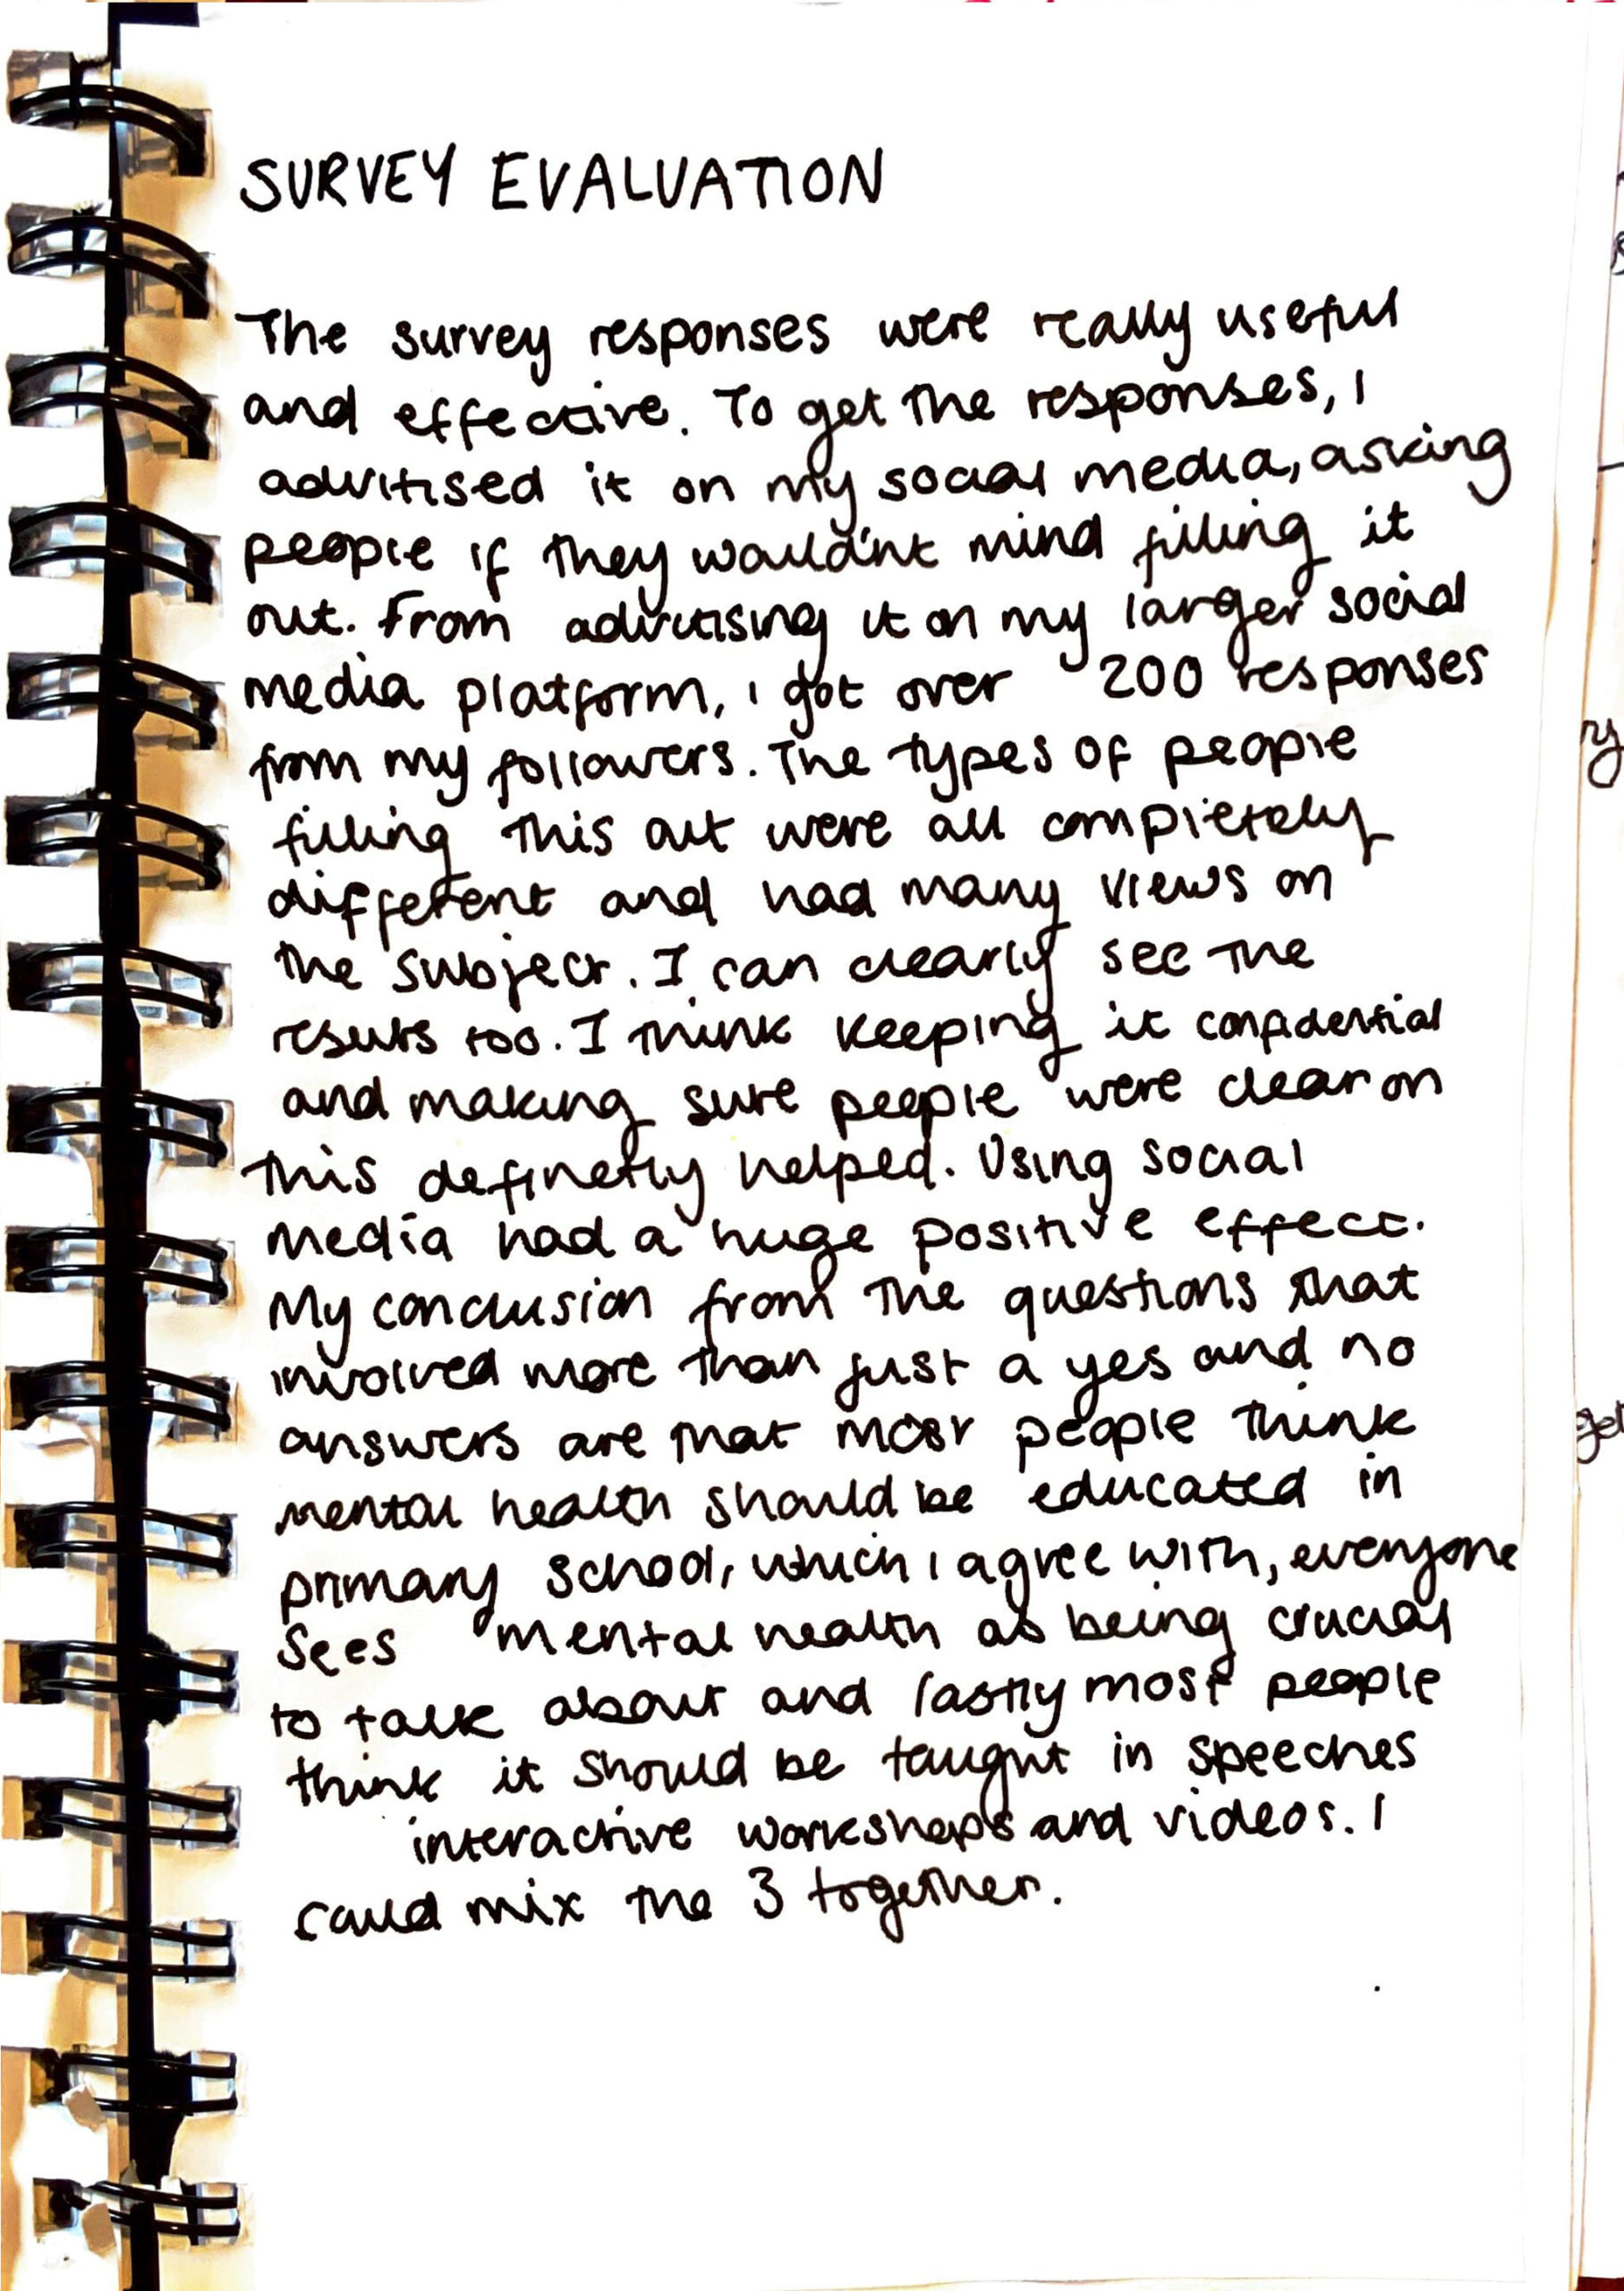 SURVEY EVALUATION
The survey responses were really useful
and effective. To get the responses, I
advitised it on my social media, asking
people if they would'nt mind filling it
out. From advitising it on my larger social
media platform, i got over 200 responses
from my followers. The types of people
filling this out were all completely
different and had many views on
the subject. I can clearly see the
results too. I think keeping it confidential
and making sure people were clear on
this definetly helped. Using social
media had a huge positive effect.
My conclusion from the questions that
involved more than just a yes and no
answers are that most people think
mental health should be educated in
primary school, which i agree with, everyone
sees mental health as being crucial
to talk about and lastly most people
think it should be taught in speeches
interactive workshops and videos. I
could mix the 3 together.
ry
get